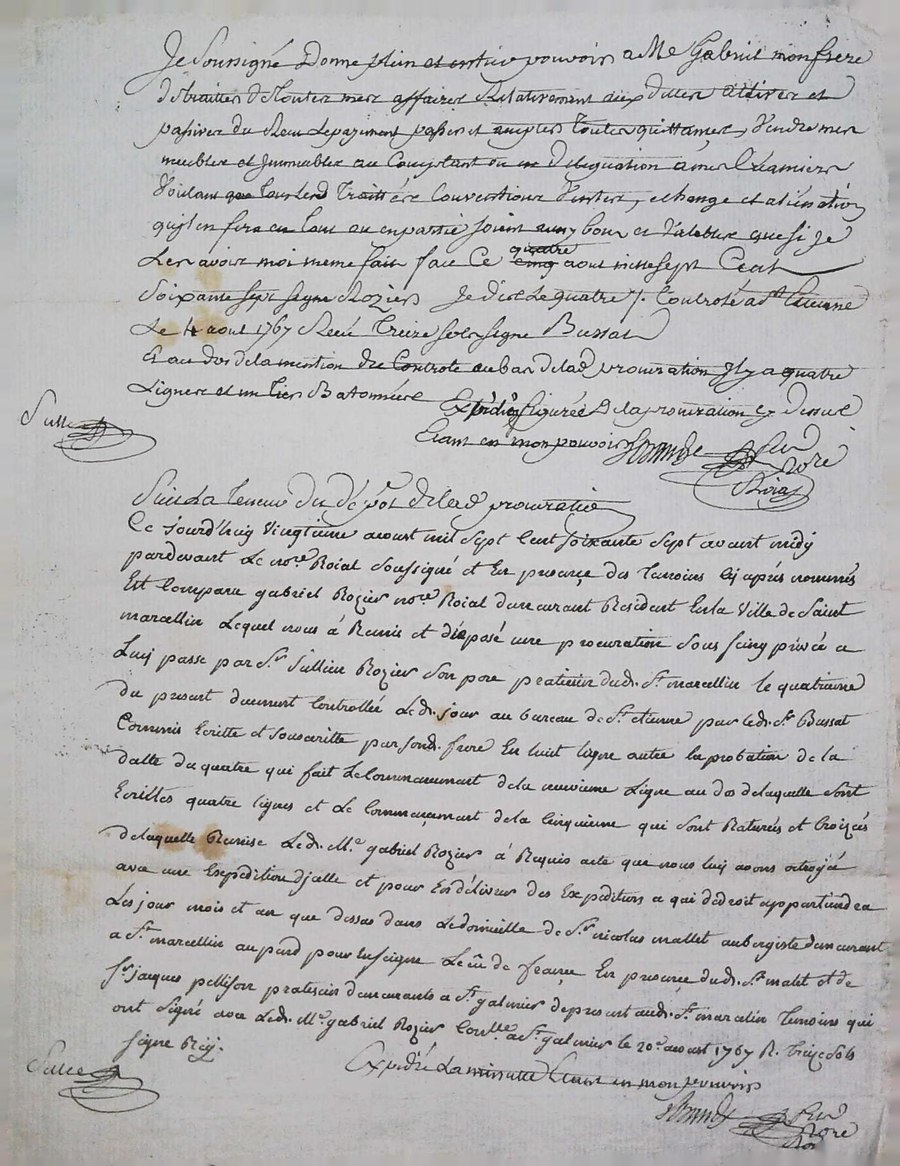 Je Soussigné Donne plein et entier pouvoir a Me Gabriel mon frere
de traitter de toutes mes affaires Relativement aux dettes actives et
passives du Reçu Le payment passer et accepter toutes quittances, Vendre mes
meubles et Immeubles au Comptant ou en deleguation a mes Creanciers
Voulant que tous Les Traittés Conventions Ventes, echange et alienation
qu'il en fera en tout ou en partie soient bons et Valables que si Je
Les avois moi meme fait face Ce quatre cinq aout mil sept Cent
Soixante sept signe Rozier Je dis Le quatre /. Controlé a St Etienne
Le 4 aout 1767 Reçu treize sols signe Bussat
Et au dos de la mention du Controle au bas de lad. procuration Il y a quatre
Lignes et un tiers Batonnées
Expedié figurée de la procuration cy Dessus
Etant en mon pouvoir
Suit La Teneur Du Depot de lad procuration
Ce Jourd'huy vingtieme aoust mil Sept Cent soixante Sept avant midy
pardevant Le nore. Roial Soussigné et En presence des temoins Cy après nommés
Est Comparu gabriel Rozier nore. Roial demeurant Resident En la Ville de Saint
marcellin Lequel nous à Remis et déposé une procuration Sous seing privé a
Luy passé par Sr. Rozier Son pratitien dud. St. marcellin le quatrieme
du present duement Controllée Led. jour au bureau de St. etienne par led. Sr. Bussat
Commis Ecritte et Souscritte par sond. frere En huit ligne outre laprobation de la
datte du quatre qui fait Le Commancement de la neuvieme Ligne au dos de laquelle Sont
Ecrittes quatre lignes et Le Commançement de la Cinquieme qui sont Raturés et Croizés
de laquelle Remise Led. Me. gabriel Rozier à Requis acte que nous luy avons octroyé
avec une Expedition d'jcelle et pour En délivrer des Expeditions a qui de droit appartiendra
Les jour mois et an que dessus dans Le domicille de Sr. nicolas mallet aubergiste demeurant
a St. marcellin au pend pour Enseigne En presence dud. Sr. malet et de
Sr. jacques pellisson pratitien demeurants a St. galmier de present aud. St. marcelin temoins qui
ont Signé avec Led. Me. gabriel Rozier Conllé a St. galmier le 20e. aoust 1767 R. treize sols
signe
Expedié La minutte Etant en mon pouvoir